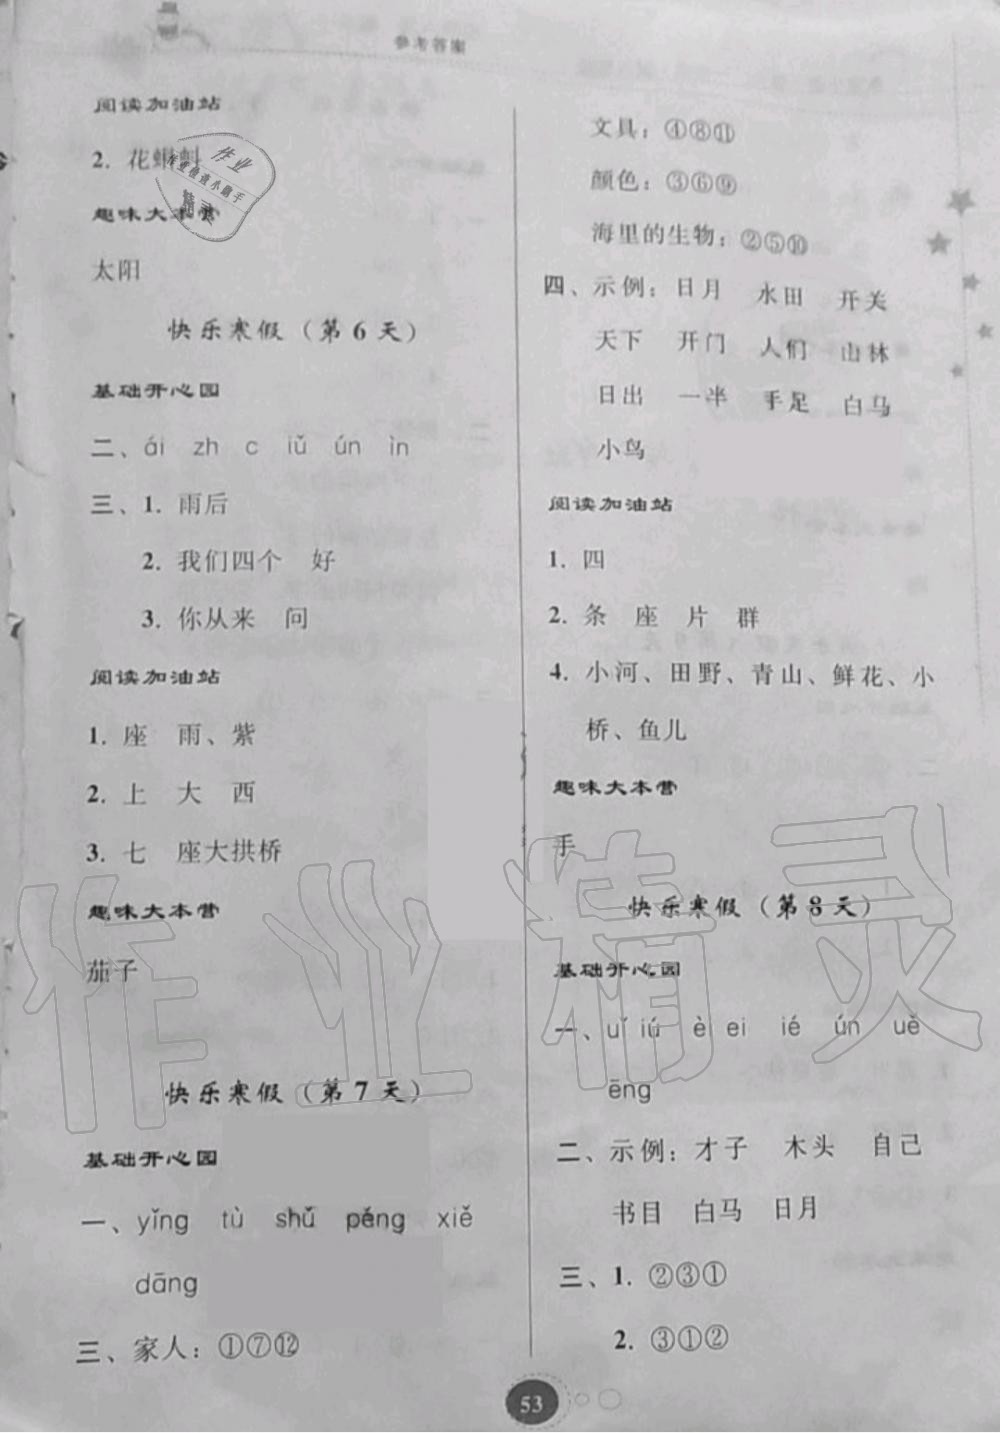 参考答案
阅读加油站
2. 花蝌蚪
趣味大本营
太阳
快乐寒假（第6天）
基础开心园
二、ái zh c iǔ ún ìn
三、1. 雨后
2. 我们四个 好
3. 你从来 问
阅读加油站
1. 座 雨、紫
2. 上 大 西
3. 七 座大拱桥
趣味大本营
茄子
快乐寒假（第7天）
基础开心园
一、yǐng tù shǔ péng xiě
dāng
三、家人：①⑦⑫
文具：④⑧⑪
颜色：③⑥⑨
海里的生物：②⑤⑩
四、示例：日月 水田 开关
天下 开门 人们 山林
日出 一半 手足 白马
小鸟
阅读加油站
1. 四
2. 条 座 片 群
4. 小河、田野、青山、鲜花、小
桥、鱼儿
趣味大本营
手
快乐寒假（第8天）
基础开心园
一、uǐ iú è ei ié ún uě
ēng
二、示例：才子 木头 自己
书目 白马 日月
三、1. ②③①
2. ③①②
53
作业
作业检查小助手
精灵
作业精灵